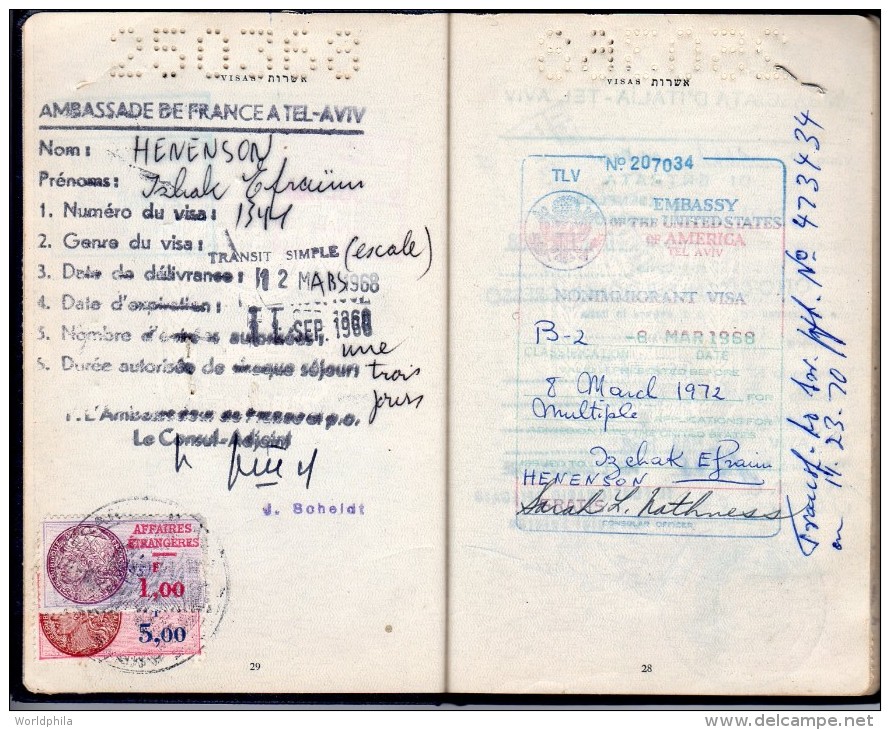 250368
VISAS אשרות
AMBASSADE DE FRANCE A TEL-AVIV
Nom: HENENSON
Prénoms: Izhak Efraïm
1. Numéro du visa: 1344
2. Genre du visa: TRANSIT SIMPLE (escale)
3. Date de délivrance: 12 MARS 1968
4. Date d'expiration: 11 SEP. 1968
5. Nombre d'entrées autorisées: une
6. Durée autorisée de chaque séjour: trois jours
P. L'Ambassadeur de France et p.o.
Le Consul-Adjoint
J. Scheidt
AFFAIRES
ÉTRANGÈRES
F
1,00
5,00
29
VISAS אשרות
TLV
Nº 207034
EMBASSY
OF THE UNITED STATES
OF AMERICA
TEL AVIV
NONIMMIGRANT VISA
B-2 -8 MAR 1968
CLASSIFICATION DATE
8 March 1972 FOR
Multiple APPLICATIONS FOR
ADMISSION INTO THE UNITED STATES
ISSUED TO
Izchak Efraim
HENENSON
Sarah L. Nathness
CONSULAR OFFICER
Transf. to Isr. ppt. Nº 473434
on 11.23.70
28
Worldphila
delcampe.net